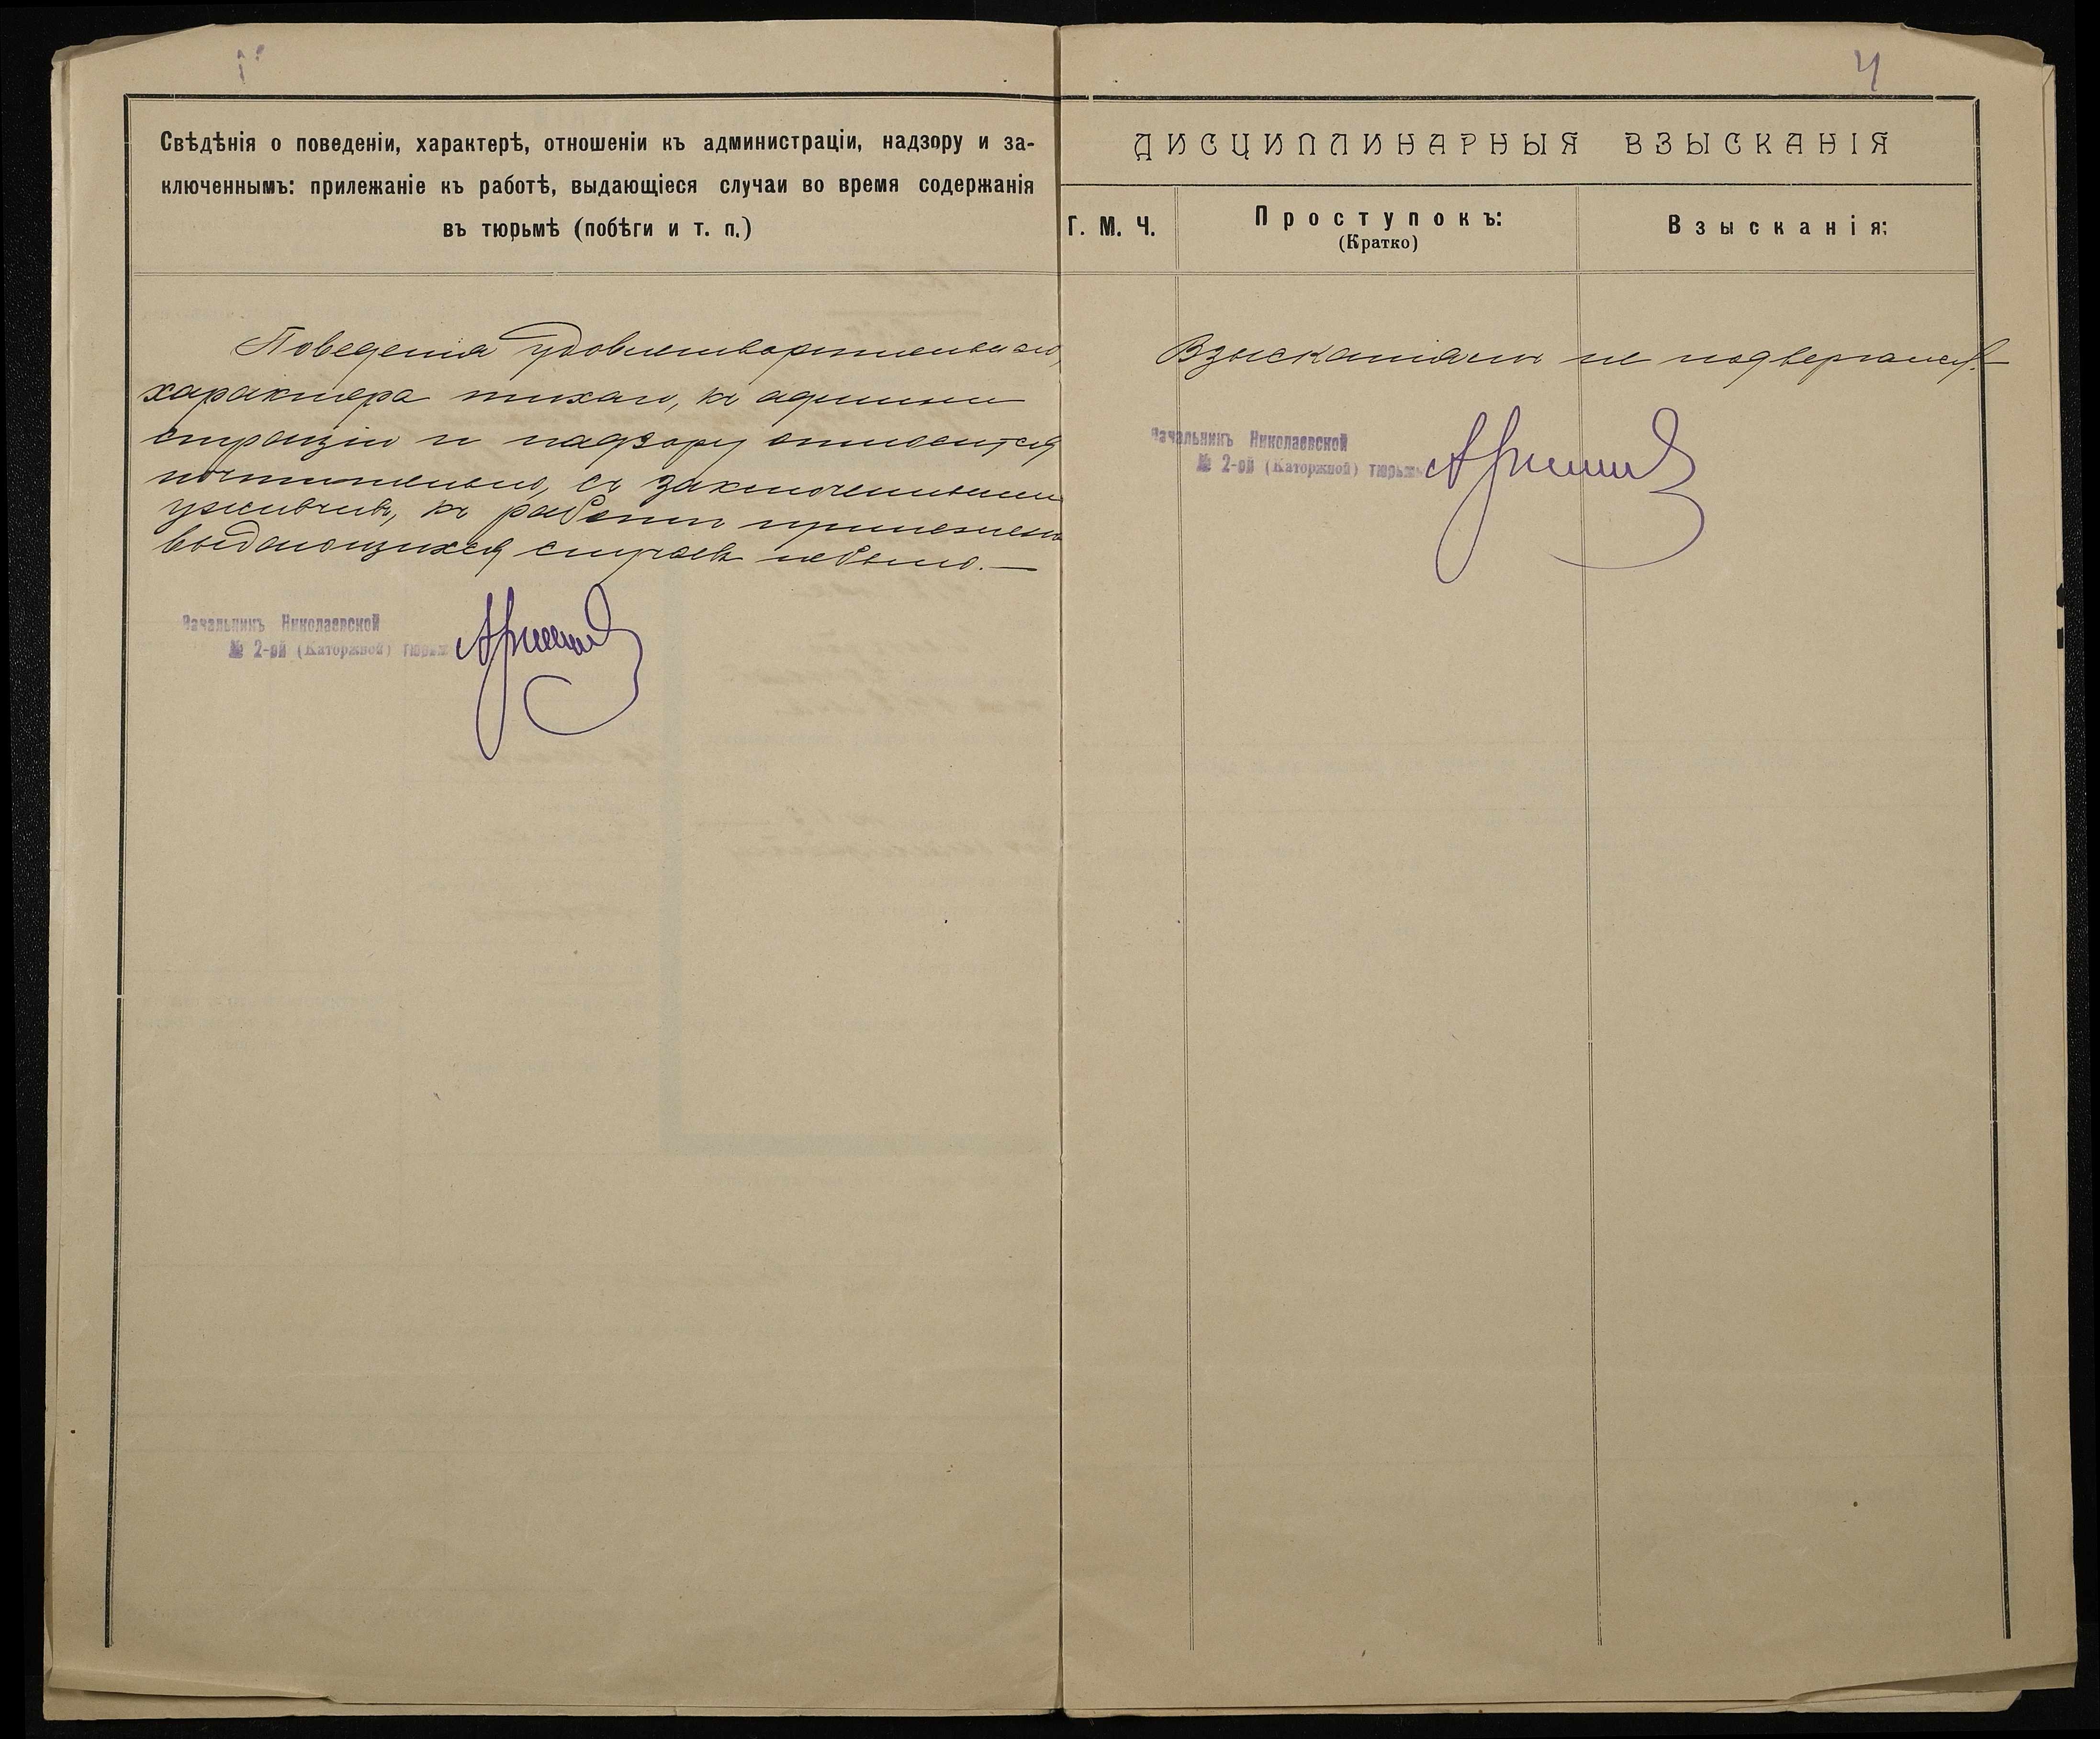 4
Свѣдѣнія о поведеніи, характерѣ, отношеніи къ администраціи, надзору и за-
ключеннымъ: прилежаніе къ работѣ, выдающіеся случаи во время содержанія
въ тюрьмѣ (побѣги и т. п.)
Поведенія удовлетворительнаго,
характера тихаго, къ админи
страціи и надзору относится
почтительно, съ заключенными
уживчивъ, къ работѣ прилеженъ
выдающихся случаевъ небыло.—
Начальникъ Николаевской
№ 2-ой (Каторжной) тюрьмы
ДИСЦИПЛИНАРНЫЯ ВЗЫСКАНІЯ
Г. М. Ч.
Проступокъ:
(Кратко)
Взысканія:
Взысканіямъ не подвергался.—
Начальникъ Николаевской
№ 2-ой (Каторжной) тюрьмы